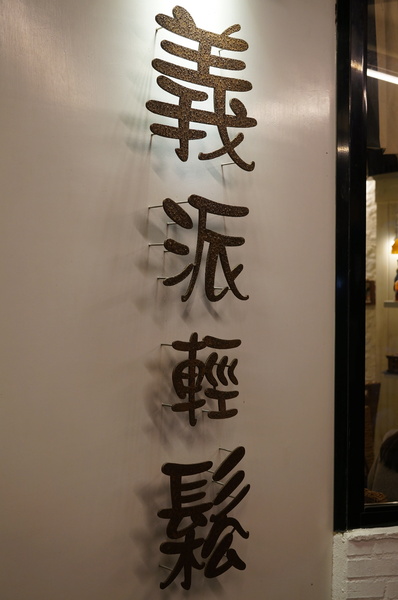 義派輕鬆